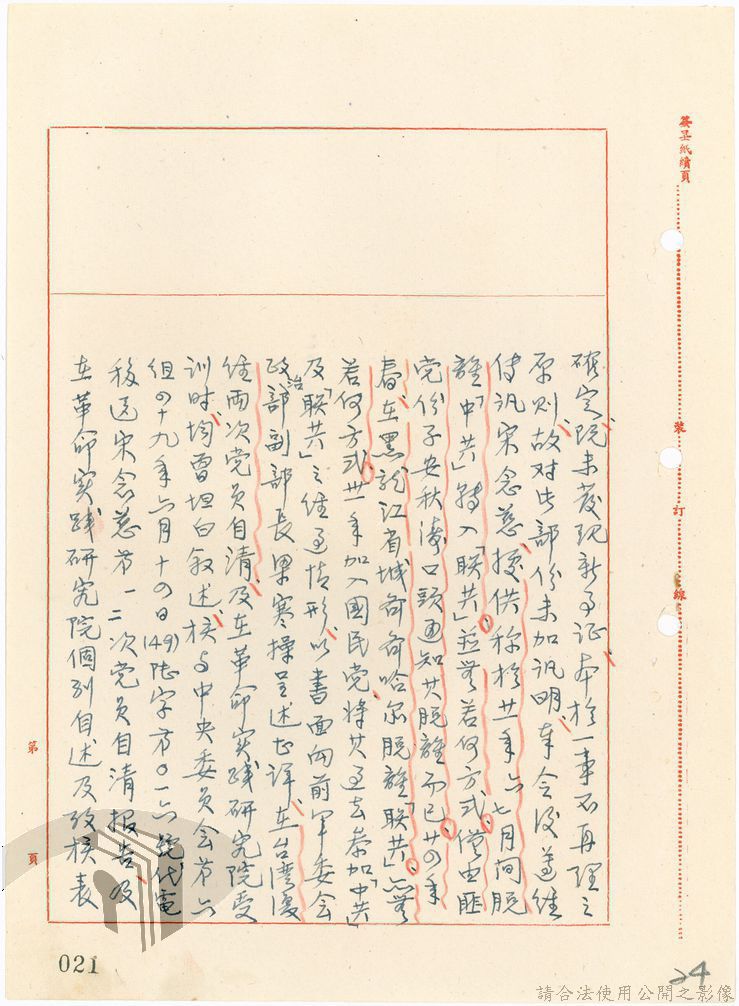 簽呈紙續頁
裝
訂
線
確定既未發现新事证本於一事不再理之
原则故对此部份未加讯明奉令後遵经
传讯宋念慈據供称於廿一年六七月间脱
離「中共」转入「联共」並無若何方式僅由匪
党份子安秋涛口頭通知其脱離而已廿四年
春在黑龙江省城齐齐哈尔脱離「联共」亦無
若何方式卅一年加入國民党将其过去参加「中共」
及「联共」之经过情形以書面向前军委会
政治部副部長梁寒操呈述甚详在台湾復
经两次党员自清及在革命实践研究院受
训时均曾坦白叙述核与中央委员会第六
组四十九年六月十四日(49)陆字第0一六號代電
移送宋念慈第一二次党员自清报告及
在革命实践研究院個別自述及攷核表
第
頁
021
24
請合法使用公開之影像